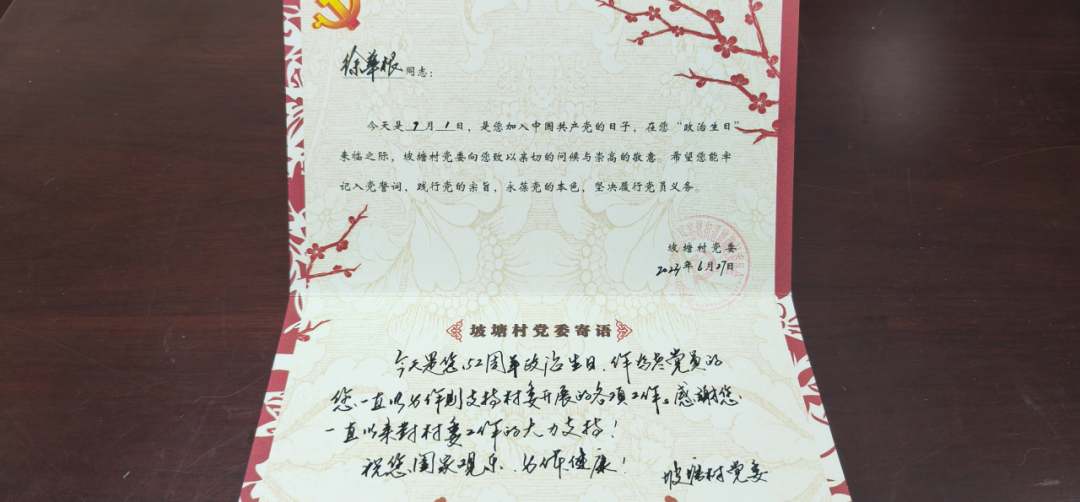 徐华根同志：
今天是7月1日，是您加入中国共产党的日子，在您“政治生日”
来临之际，坡塘村党委向您致以亲切的问候与崇高的敬意。希望您能牢
记入党誓词，践行党的宗旨，永葆党的本色，坚决履行党员义务。
坡塘村党委
2023年6月27日
坡塘村党委寄语
今天是您52周年政治生日、作为老党员的
您一直以身作则支持村委开展的各项工作。感謝您
一直以来對村委工作的大力支持！
祝您阖家观乐、身体健康！
坡塘村党委